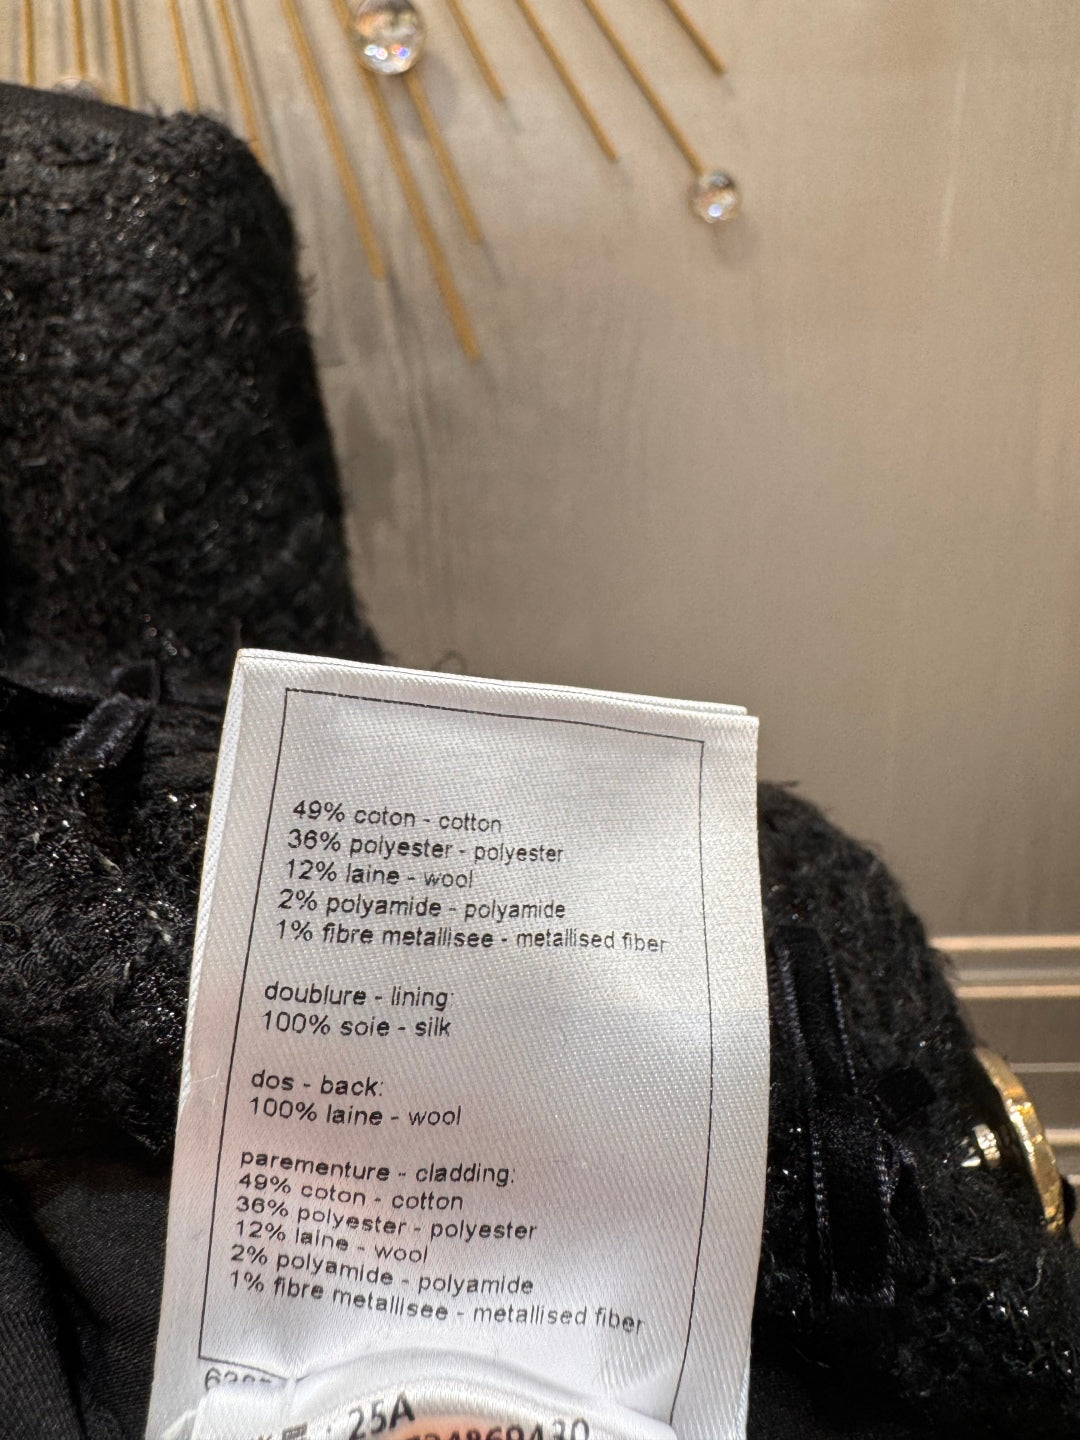 49% coton - cotton
36% polyester - polyester
12% laine - wool
2% polyamide - polyamide
1% fibre metallisee - metallised fiber
doublure - lining:
100% soie - silk
dos - back:
100% laine - wool
parementure - cladding:
49% coton - cotton
36% polyester - polyester
12% laine - wool
2% polyamide - polyamide
1% fibre metallisee - metallised fiber
25A